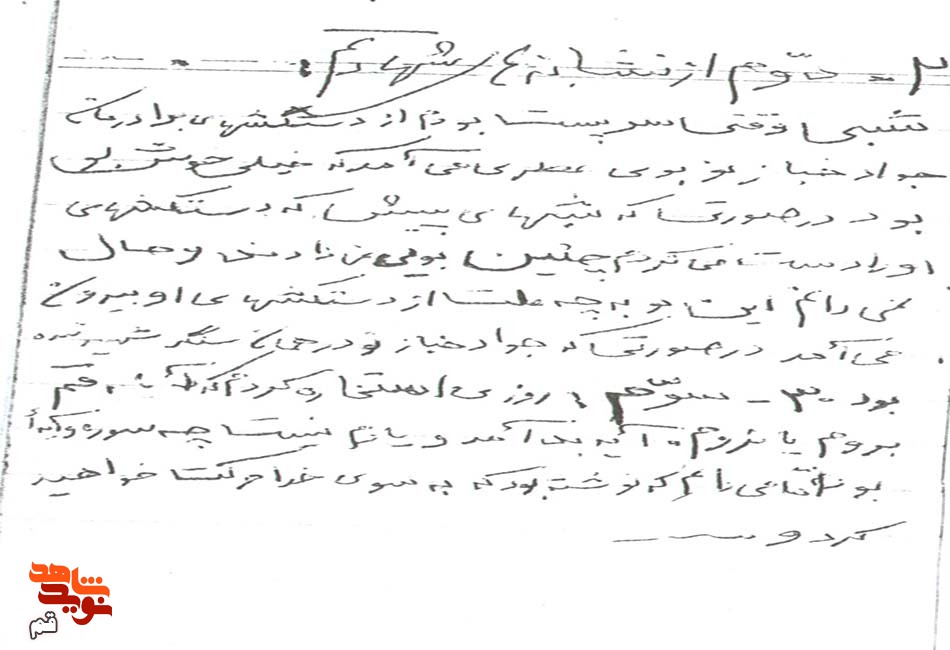 ۲ـ دوّم از نشانه‌های شهادتم:
شبی وقتی سر پست بودم از دستکشهای برادرمان
جواد خباز نو بوی عطری می آمد که خیلی خوش بو
بود در صورتی که شبهای پیش که دستکشهای
او را دست می کردم چنین بویی نمی دادند و حال
نمی دانم این بو به چه علت از دستکشهای او بیرون
می آمد در صورتی که جواد خباز نو در همان سنگر شهید شده
بود. ۳ـ سوّم: روزی استخاره کردم که به قم
بروم یا نروم. آیه بد آمد و یادم نیست چه سوره و آیه‌ای
بود می دانم که نوشته بود که به سوی خدا حرکت خواهید
کرد و ـــ
نوید شاهد
قم